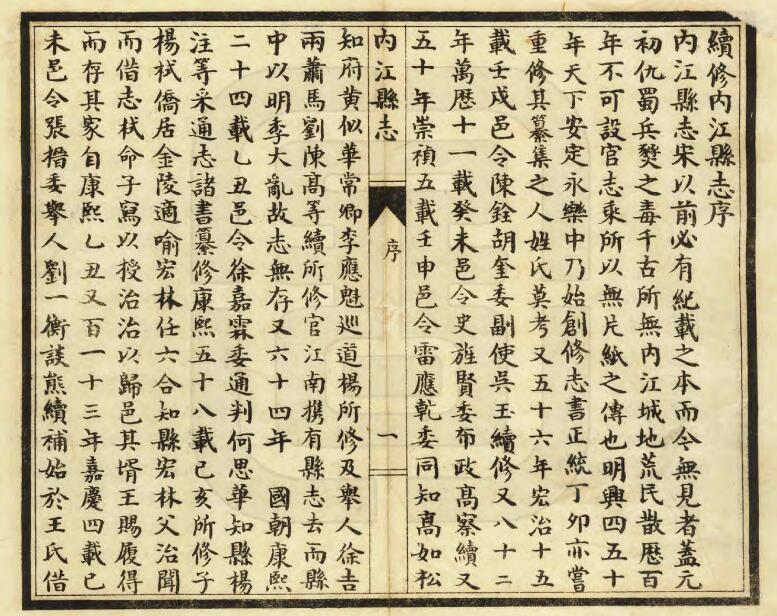 續修內江縣志序
內江縣志宋以前必有紀載之本而今無見者蓋元
初仇蜀兵燹之毒千古所無內江城地荒民散歷百
年不可設官志乘所以無片紙之傳也明興四五十
年天下安定永樂中乃始創修志書正統丁卯亦嘗
重修其纂集之人姓氏莫考又五十六年宏治十五
載壬戌邑令陳銓胡奎委副使吳玉續修又八十二
年萬歷十一載癸未邑令史旌賢委布政高察續又
五十年崇禎五載壬申邑令雷應乾委同知高如松
內江縣志
序
一
知府黃似華常卿李應魁巡道楊所修及舉人徐吉
兩蕭馬劉陳高等續所修官江南攜有縣志去而縣
中以明季大亂故志無存又六十四年 國朝康熙
二十四載乙丑邑令徐嘉霖委通判何思華知縣楊
注等采通志諸書纂修康熙五十八載己亥所修子
楊栻僑居金陵適喻宏林任六合知縣宏林父治聞
而借志栻命子寫以授治治以歸邑其壻王賜履得
而存其家自康熙乙丑又百一十三年嘉慶四載己
未邑令張搢委舉人劉一衡談熊續補始於王氏借